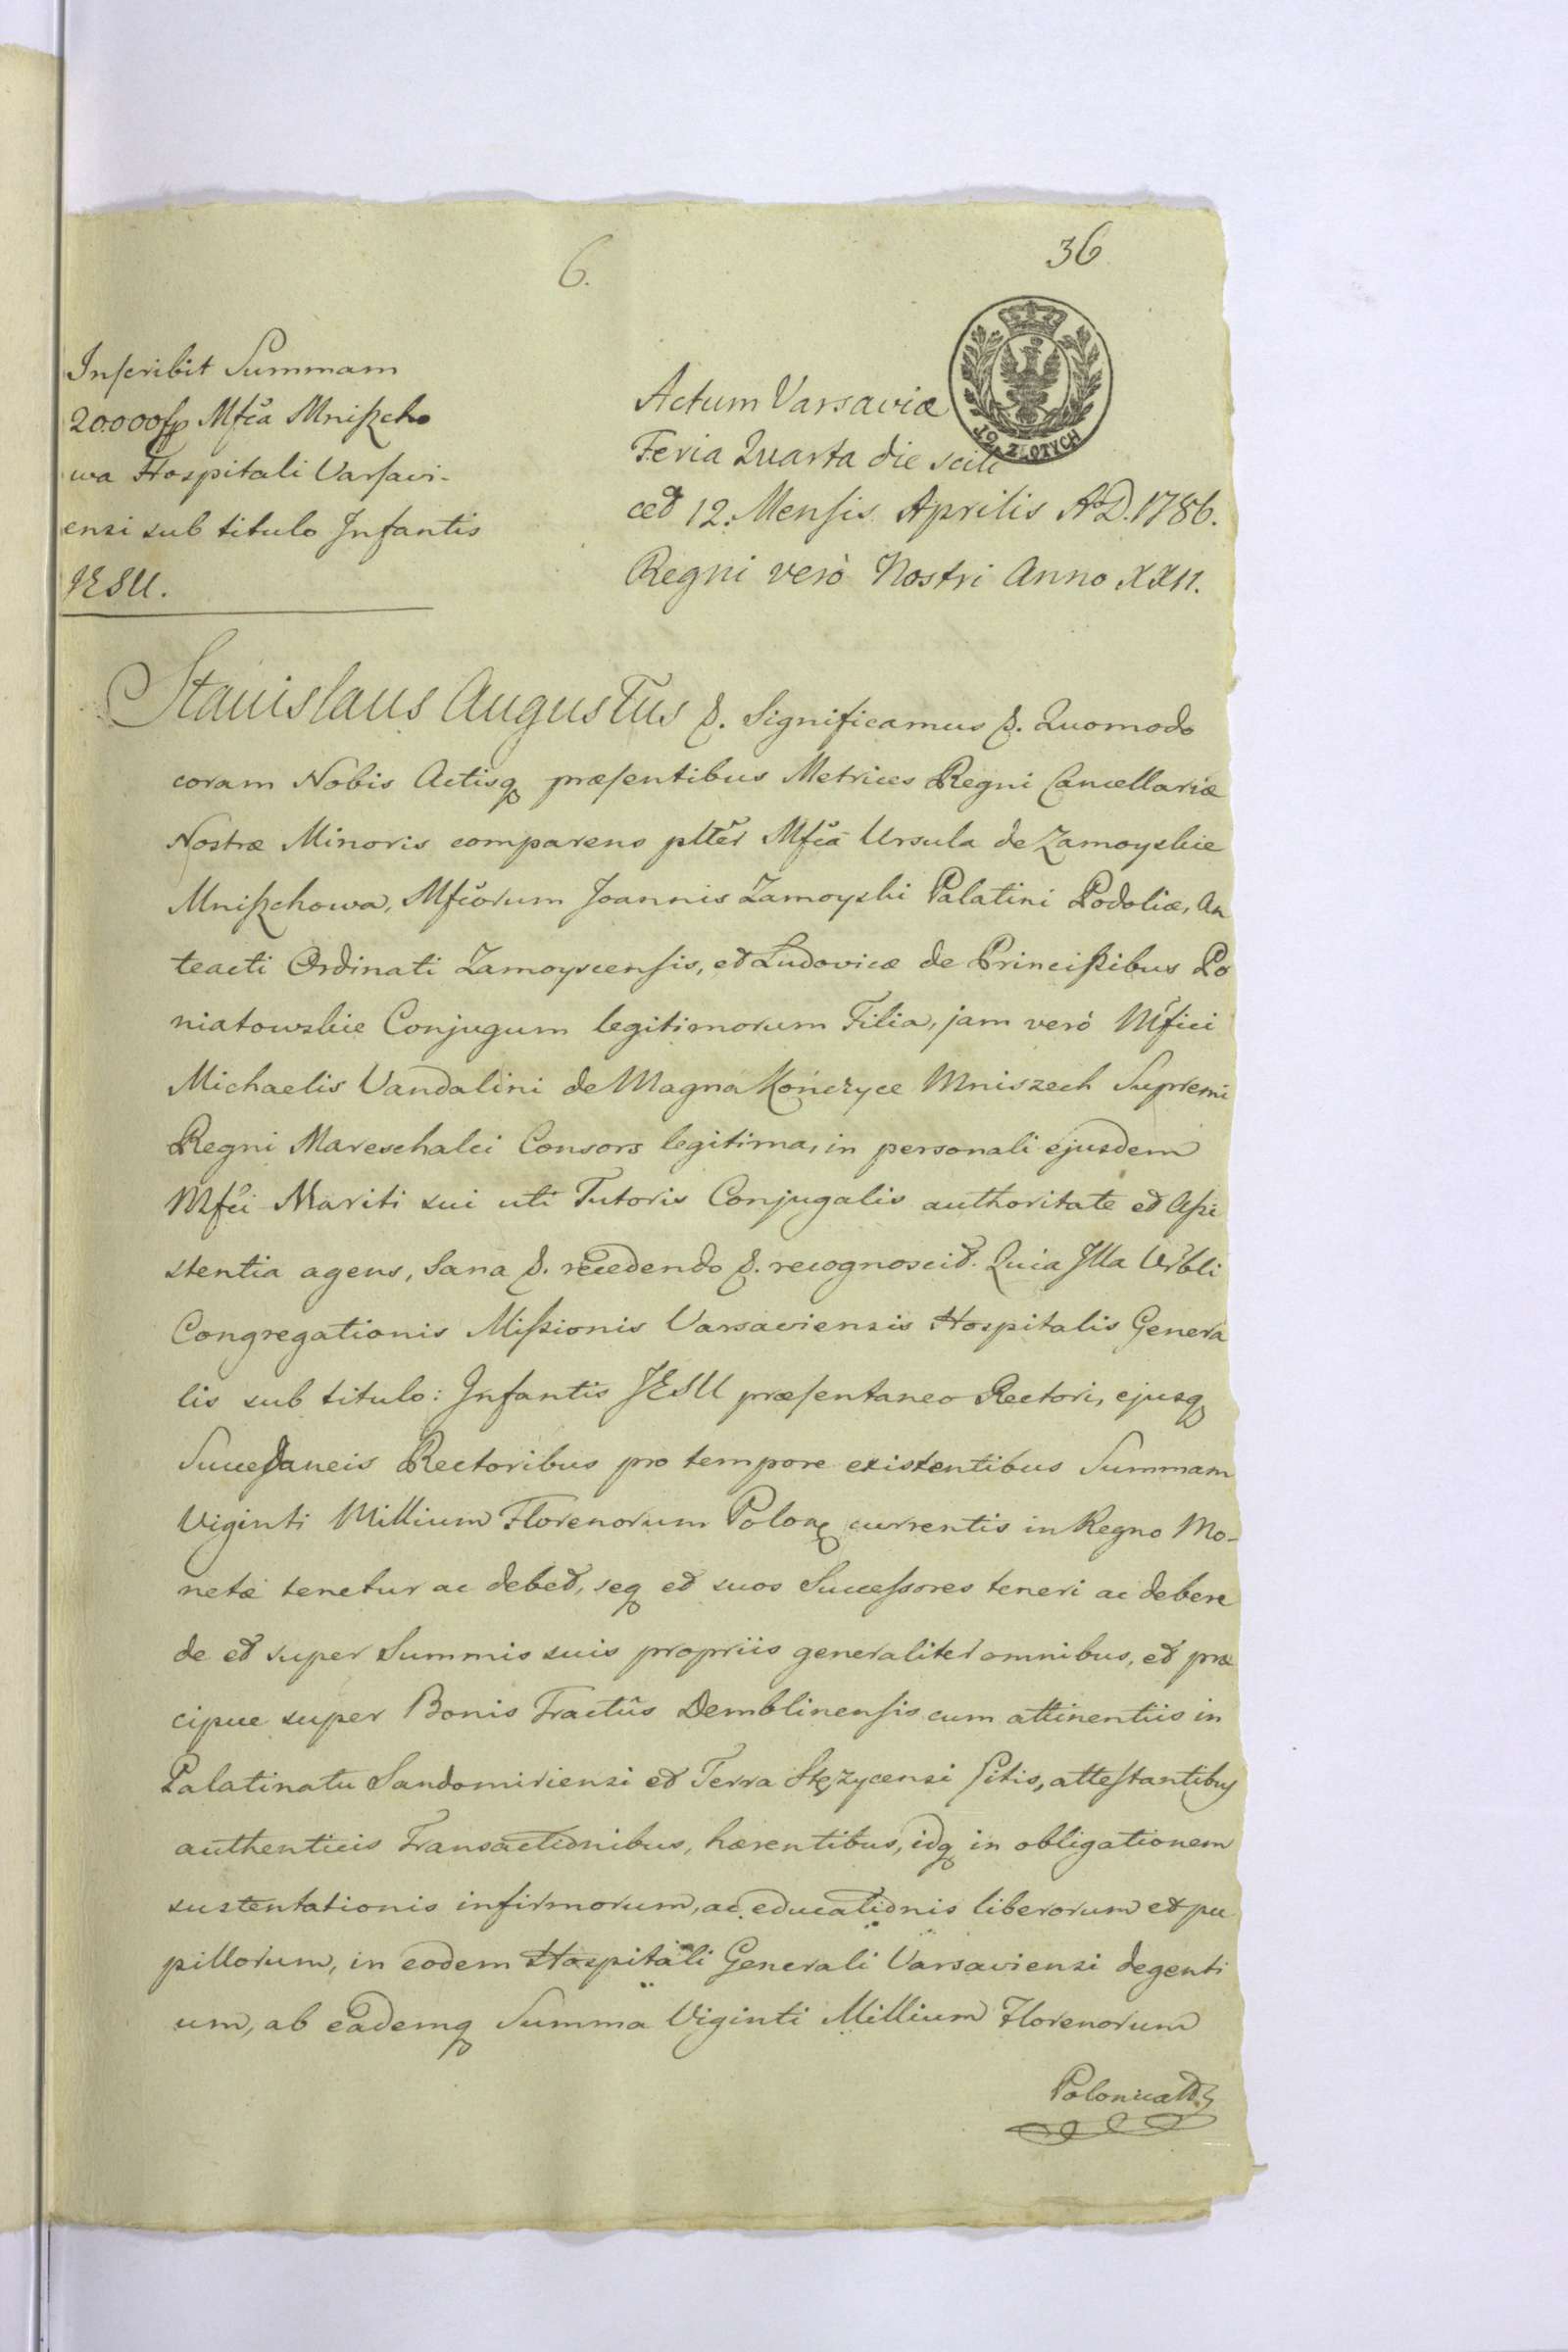 6.
36
Inscribit Summam
20.000 fp Mfca Mniszcho
wa Hospitali Varsavi-
ensi sub titulo Infantis
JESU.
Actum Varsaviæ
Feria Quarta die scili
cet 12. Mensis Aprilis A.D. 1786.
Regni verò Nostri Anno XXII.
12 ZŁOTYCH
Stanislaus Augustus &. Significamus &. Quomodo
coram Nobis Actisq præsentibus Metrices Regni Cancellariæ
Nostræ Minoris comparens plter Mfca Ursula de Zamoyskie
Mniszchowa, Mfcorum Joannis Zamoyski Palatini Podoliæ, An
teacti Ordinati Zamoyscensis, et Ludovicæ de Principibus Po
niatowskie Conjugum legitimorum Filia, jam verò Mfici
Michaelis Vandalini de Magna Kończyce Mniszech Supremi
Regni Mareschalci Consors legitima, in personali ejusdem
Mfci Mariti sui uti Tutoris Conjugalis authoritate et assi
stentia agens, Sana &. recedendo &. recognoscit. Quia Illa Vrbli
Congregationis Missionis Varsaviensis Hospitalis Genera
lis sub titulo: Infantis JESU præsentaneo Rectori, ejusq
Succedaneis Rectoribus pro tempore existentibus Summam
Viginti Millium Florenorum Polonq currentis in Regno Mo-
netæ tenetur ac debet, seq et suos Successores teneri ac debere
de et super Summis suis propriis generaliter omnibus, et præ
cipue super Bonis Tractûs Demblinensis cum attinentiis in
Palatinatu Sandomiriensi et Terra Stężycensi sitis, attestantibus
authenticis Transactionibus, hærentibus, idq in obligationem
sustentationis infirmorum, ac educationis liberorum et pu
pillorum, in eodem Hospitali Generali Varsaviensi degenti
um, ab eademq Summa Viginti Millium Florenorum